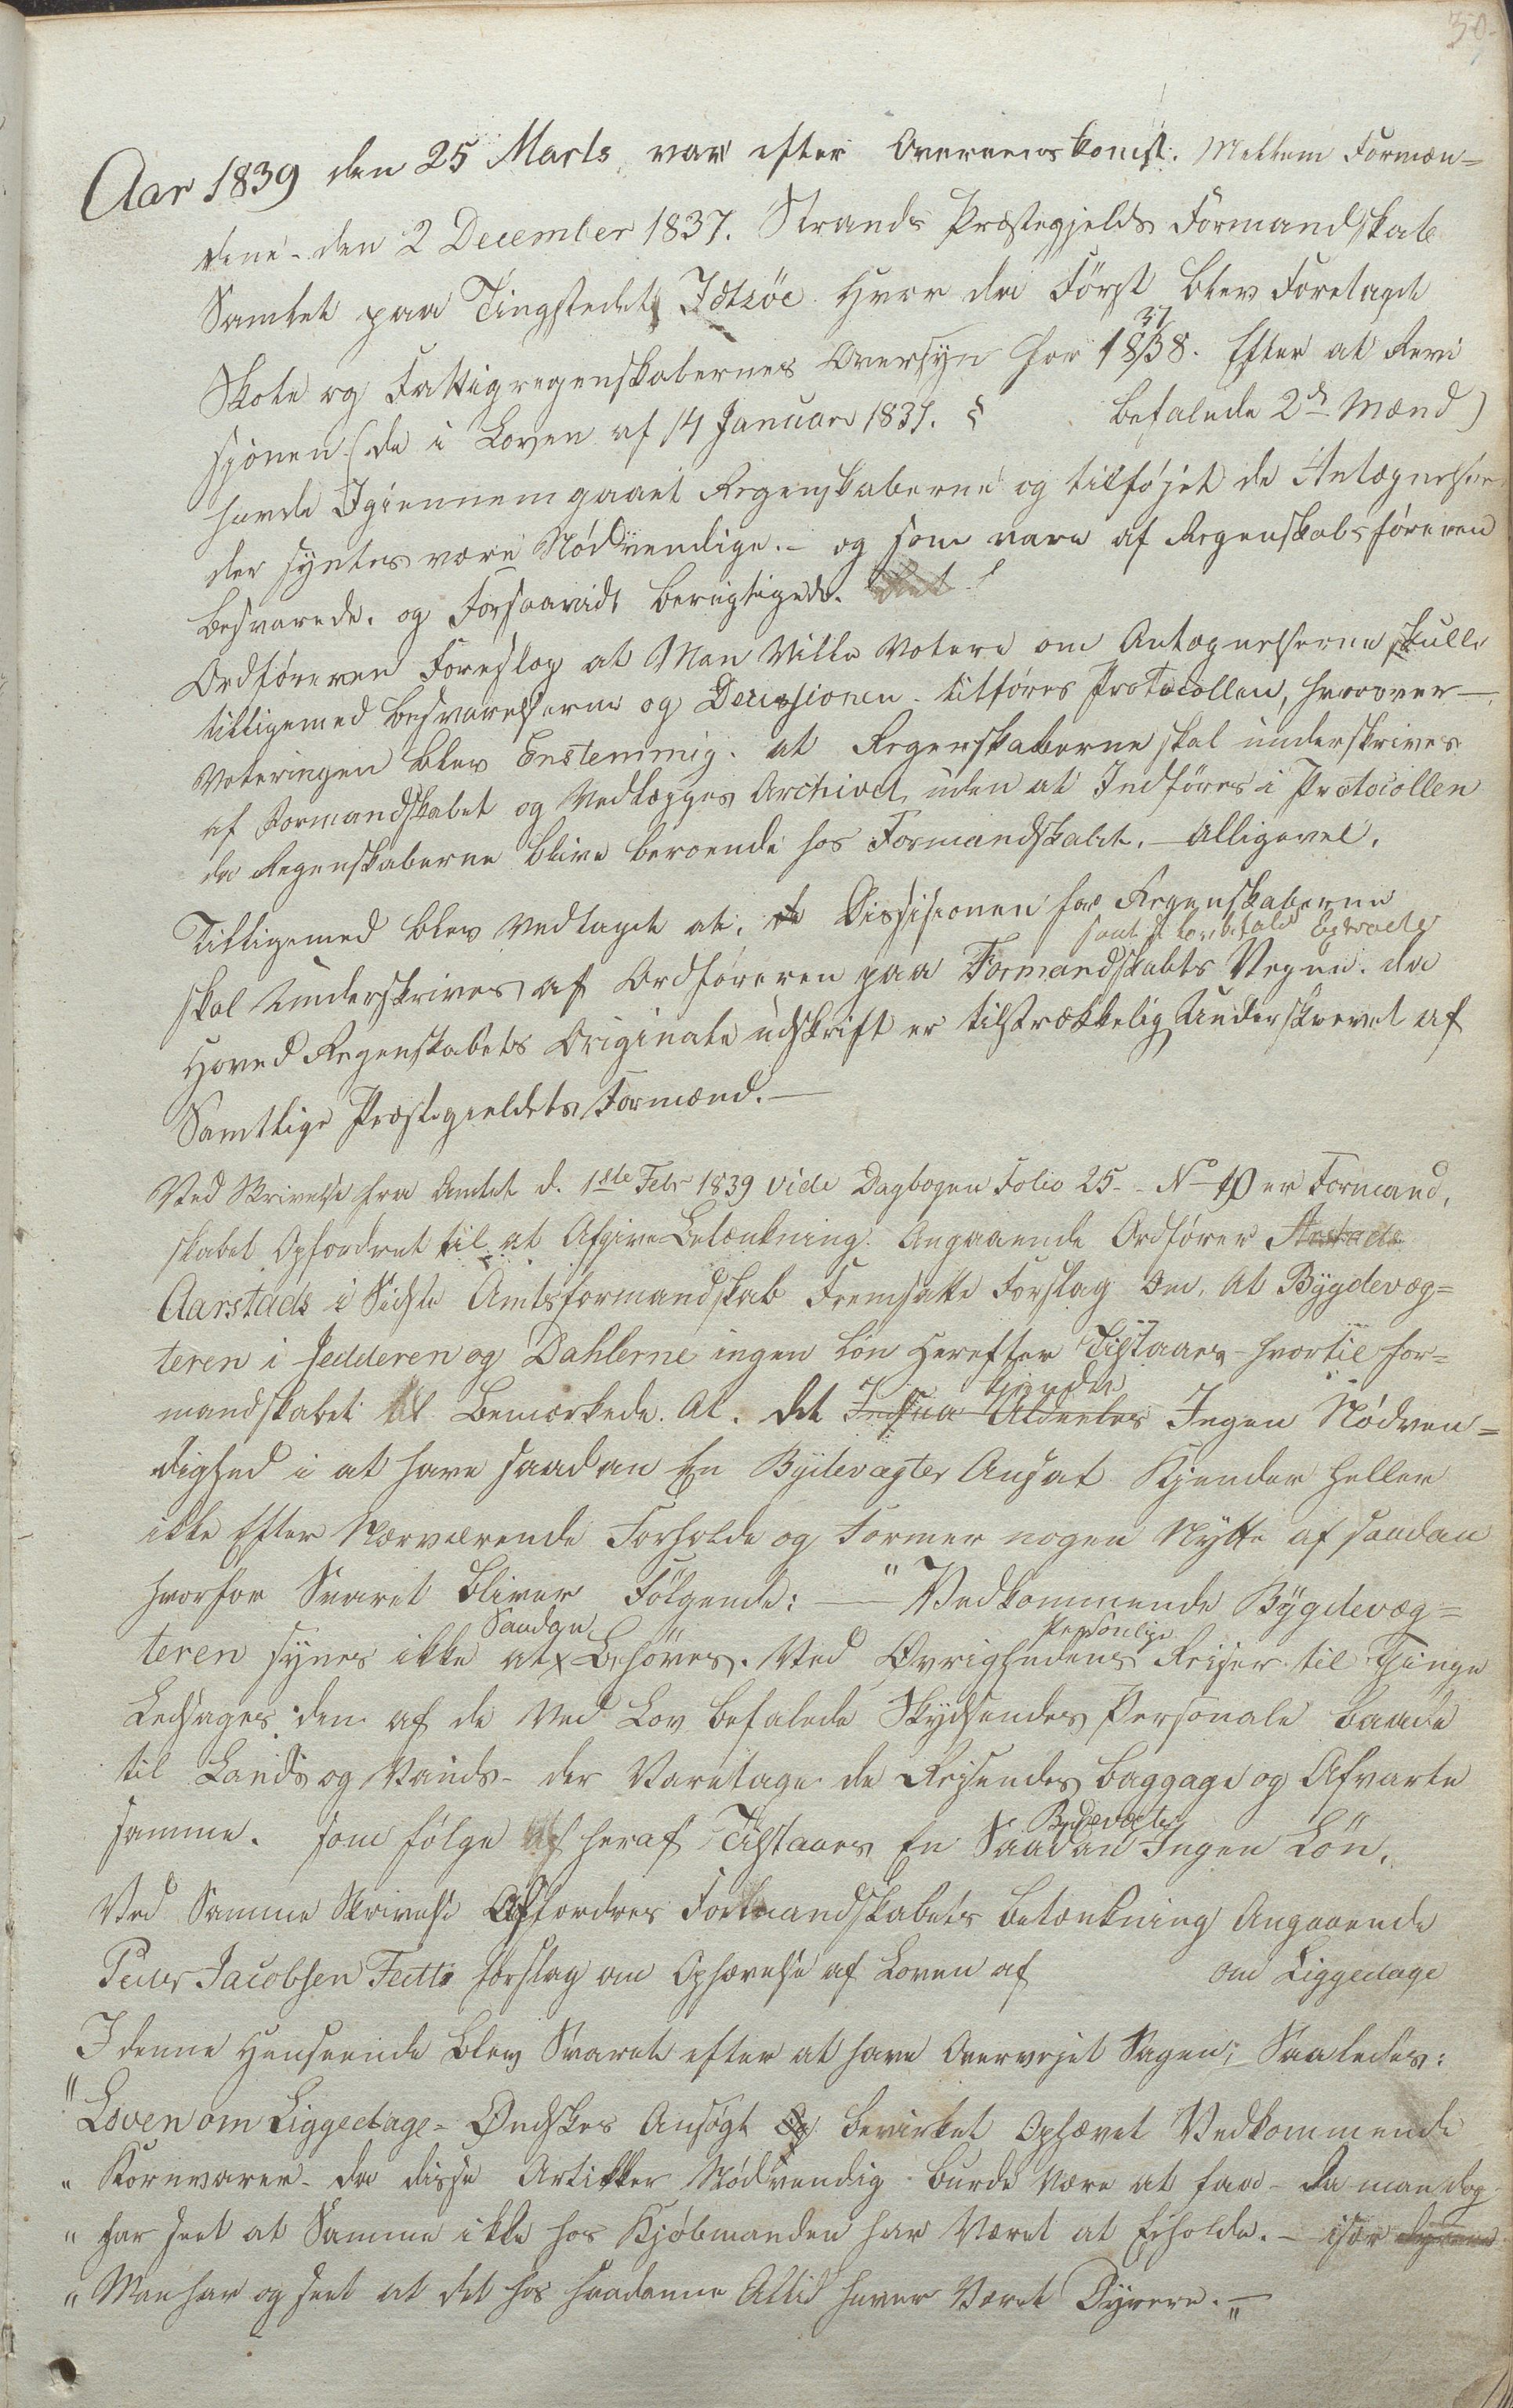 30.
Aar 1839 den 25 Marts, var efter Overeenskomst. Mellem Formæn=
dene - den 2 December 1837. Strands Præstegjelds Formandskab
Samlet paa Tingstedet Idtzöe. Hvor da Först blev Foretaget
Skole og Fattigregenskabernes Oversyn for 1837/38. Efter at Revi
sjonen (de i Loven af 14 Januar 1837. § befalede 2de Mænd)
havde Igiennemgaaet Regenskaberne og tilføjet de Antægnelser
der syntes være Nødvendige. - og som vare af Regenskabsføreren
besvarede. og Forsaavidt berigtigede.
Ordføreren Foreslog at Man Ville Votere om Antægnelserne skulle
tilligemed besvarelserne og Decissionen - tilføres Protocollen, hvorover -
Voteringen blev Enstemmig. at Regenskaberne skal underskrives
af Formandskabet og Vedlægges Archivet, uden at Indføres i Protocollen
da Regenskaberne blive beroende hos Formandskabet. - alligevel.
Tilligemed blev Vedtaget at, Dissisionen for Regenskaberne
samt de lovbefalede Extracter
skal Underskrives af Ordføreren paa Formandskabts Vegne. da
Hoved Regenskabets Originale udskrift er tilstrækkelig Underskrevet af
Samtlige Præstegieldets Formænd. -
Ved Skrivelse fra Amtet d. 1ste Febr 1839 vide Dagbogen Folio 25 - No 10 er Formand,
skabet Opfordret til at Afgive Betænkning. Angaaende Ordfører
Aarstads i Sidste Amtsformandskab Fremsatte Forslag Om, At Bygdevæg=
teren i Jedderen og Dahlerne ingen Løn Herefter Tilstaaes - hvortil for=
mandskabet Bemærkede. At. det kjender Ingen Nödven=
dighed i at have saadan En Bydevægter Ansat. Kjender heller
ikke Efter Nærværende Forholde og Former nogen Nytte af saadan
hvorfor Svaret bliver Følgende: - " Vedkommende Bygdevæg=
teren synes ikke at Saadan Behöves. Ved Øvrighedens Personlige Reiser til Tinge
Ledsages den af de Ved Lov befalede Skydsendes Personale baade
til Lands og Vands - der Varetage de Reisendes baggage og Afvarte
samme. som følge heraf Tilstaaes En Saadan Bydevægter Ingen Lön.
Ved Samme Skrivelse Affordres Formandskabets Betænkning Angaaende
Peder Jacobsen Fætts forslag om Ophævelse af Loven af om Liggedage
I denne Henseende blev Svaret efter at have Overvejet Sagen; Saaledes:
" Loven om Liggedage - Ønskes Ansøgt bevirket Ophævet Vedkommende
" Kornvarer - da disse Artikler Nødvendig burde være at faae - da man dog
" har seet at Samme ikke hos Kjøbmanden har Været at Erholde. - især
" Man har og seet at det hos saadanne Altid haver Været Dyrere. - "